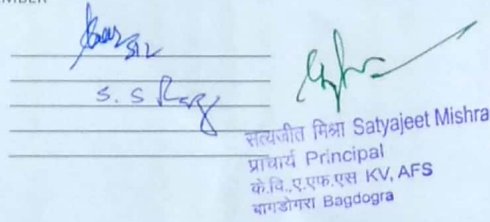 S. S Roy
सत्यजीत मिश्रा Satyajeet Mishra
प्राचार्य Principal
के.वि.,ए.एफ.एस KV, AFS
बागडोगरा Bagdogra